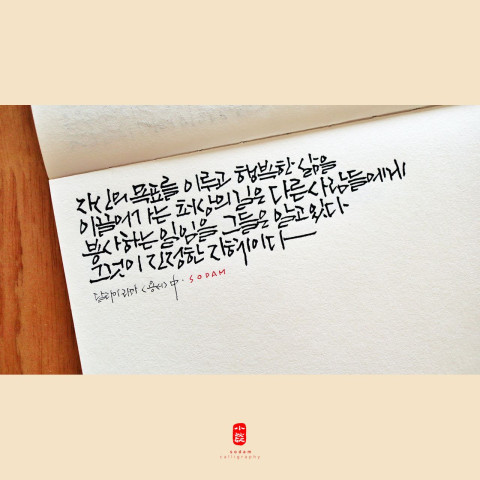 자신의 목표를 이루고 행복한 삶을
이끌어 가는 최상의 길은 다른 사람들에게
봉사하는 일임을 그들은 알고 있다.
그것이 진정한 지혜이다
달라이 라마 <용서> 中. SODAM
小談
sodam
calligraphy